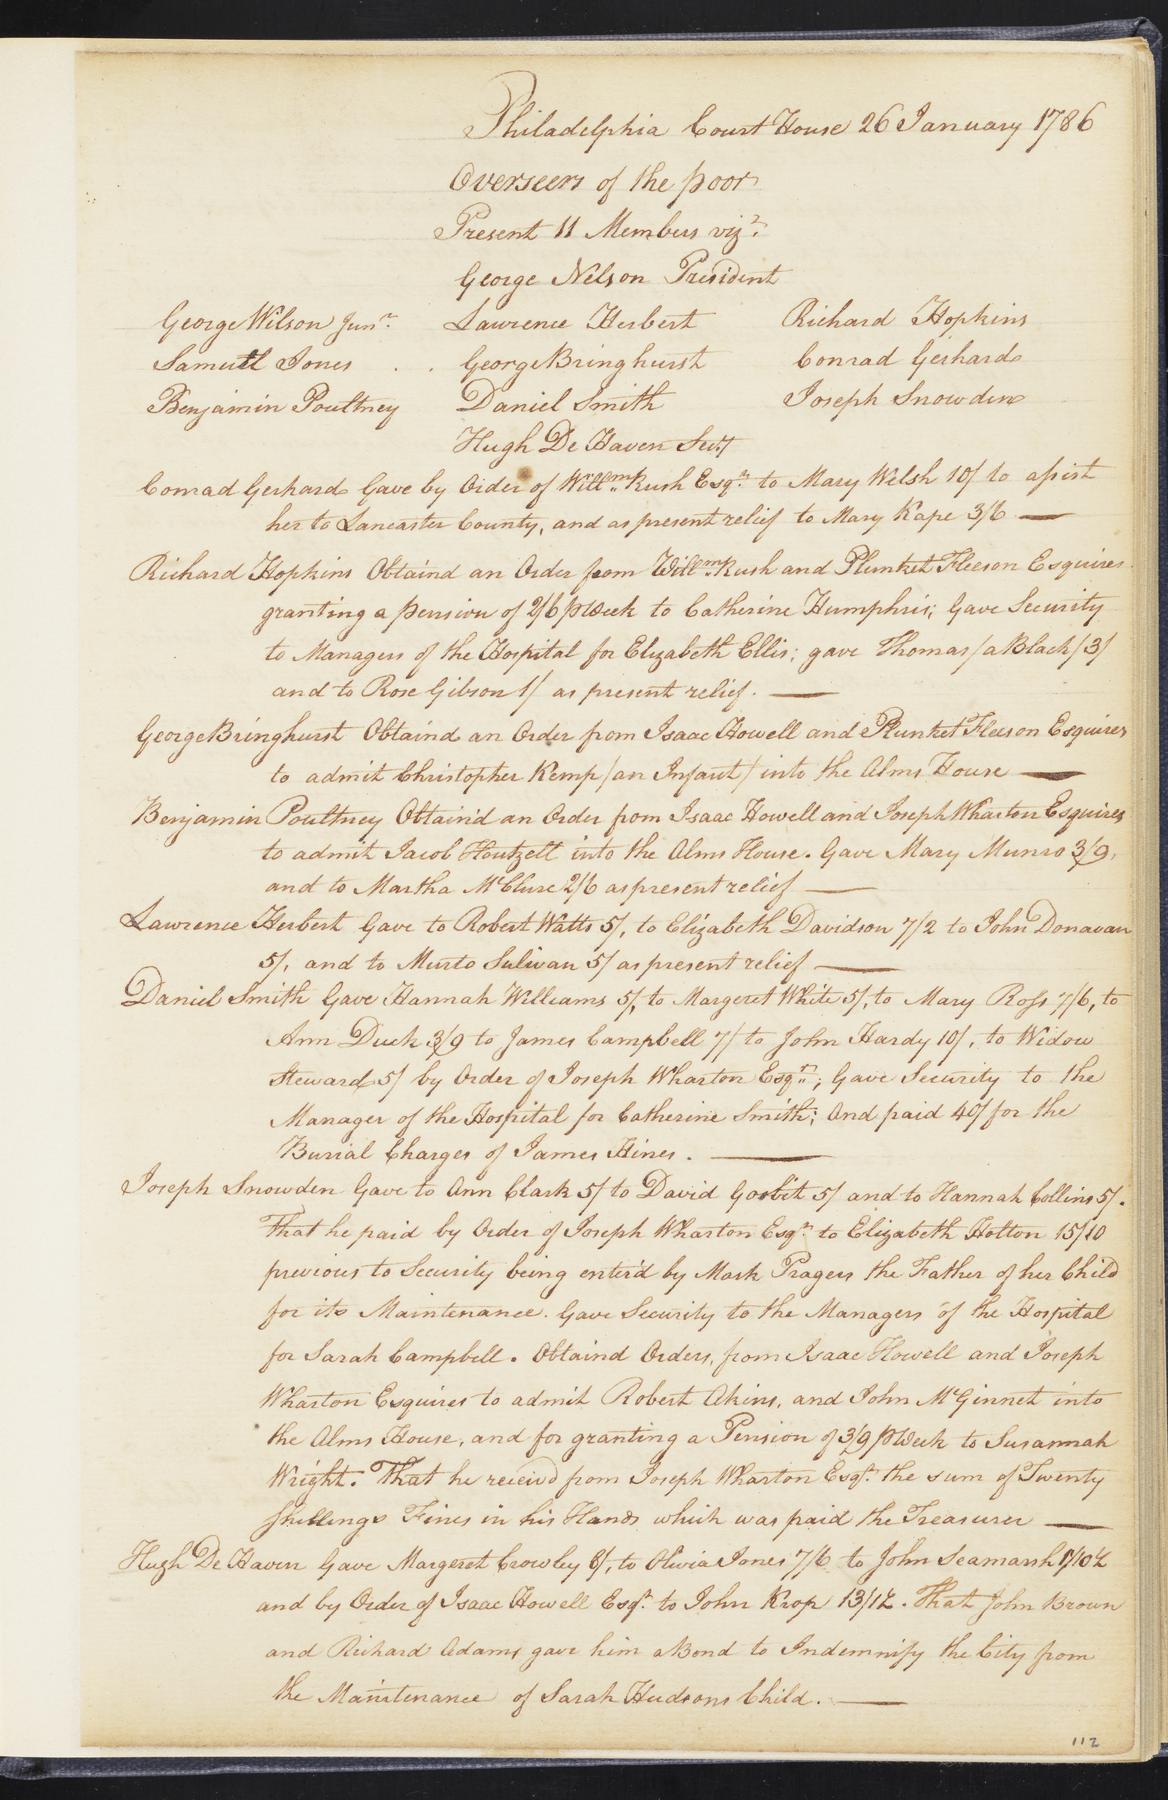 Philadelphia Court House 26 January 1786
Overseers of the poor
Present 11 Members vizt.
George Nelson President
George Wilson Junr. Lawrence Herbert Richard Hopkins
Samuel Jones . . George Bringhurst Conrad Gerhard
Benjamin Poultney Daniel Smith Joseph Snowden
Hugh De Haven Secy
Conrad Gerhard Gave by Order of Willm. Rush Esqr. to Mary Welsh 10/ to assist
her to Lancaster County, and as present relief to Mary Kape 3/6 —
Richard Hopkins Obtaind an Order from Willm. Rush and Plunket Fleeson Esquires
granting a pension of 2/6 p Week to Catherine Humphris; Gave Security
to Managers of the Hospital for Elizabeth Ellis; gave Thomas /a Black/ 3/
and to Rose Gibson 1/ as present relief. —
George Bringhurst Obtaind an Order from Isaac Howell and Plunket Fleeson Esquires
to admit Christopher Kemp /an Infant/ into the Alms House —
Benjamin Poultney Obtain'd an Order from Isaac Howell and Joseph Wharton Esquires
to admit Jacob Houtzell into the Alms House. Gave Mary Munro 3/9,
and to Martha McClure 2/6 as present relief —
Lawrence Herbert Gave to Robert Watts 5/, to Elizabeth Davidson 7/2 to John Donavan
5/, and to Murto Sulivan 5/ as present relief —
Daniel Smith Gave Hannah Williams 5/, to Margeret White 5/, to Mary Ross 7/6, to
Ann Duck 3/9 to James Campbell 7/ to John Hardy 10/, to Widow
Steward 5/ by Order of Joseph Wharton Esqr.; Gave Security to the
Manager of the Hospital for Catherine Smith; And paid 40/ for the
Burial Charges of James Hines. —
Joseph Snowden Gave to Ann Clark 5/ to David Gosbit 5/ and to Hannah Collins 5/.
That he paid by Order of Joseph Wharton Esqr. to Elizabeth Hotton 15/10
previous to Security being enter'd by Mark Pragers the Father of her Child
for its Maintenance. Gave Security to the Managers of the Hospital
for Sarah Campbell. Obtaind Orders, from Isaac Howell and Joseph
Wharton Esquires to admit Robert Akins, and John McGinnet into
the Alms House, and for granting a Pension of 3/9 p Week to Susannah
Wright. That he receiv'd from Joseph Wharton Esqr. the sum of Twenty
shillings Fines in his Hands which was paid the Treasurer —
Hugh De Haven Gave Margeret Crowley 8/, to Olivia Jones 7/6 to John Seamarsh 1/10½
and by Order of Isaac Howell Esqr. to John Krop 13/1½. That John Brown
and Richard Adams gave him a Bond to Indemnify the City from
the Maintenance of Sarah Hudsons Child. —
112